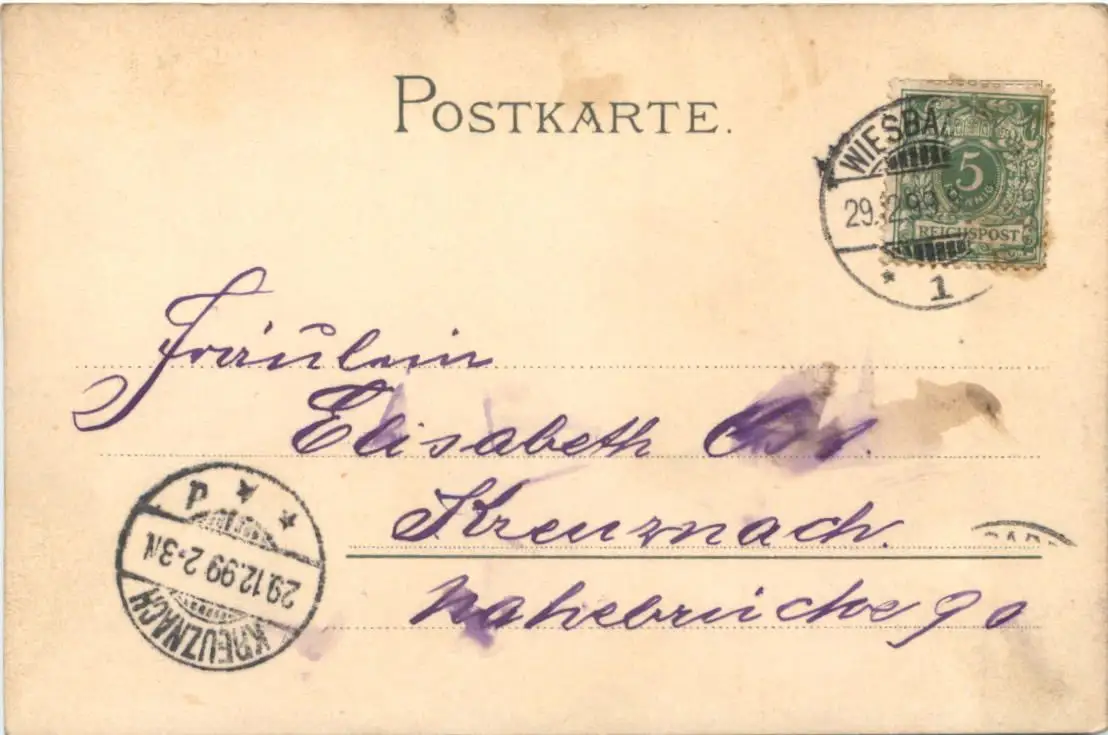 POSTKARTE.
WIESBA
29.12.99.8
* 1
5
PFENNIG
REICHSPOST
Fräulein
Elisabeth
Kreuznach.
Nahebrücke 9
KREUZNACH
29.12.99 2-3N
* * P